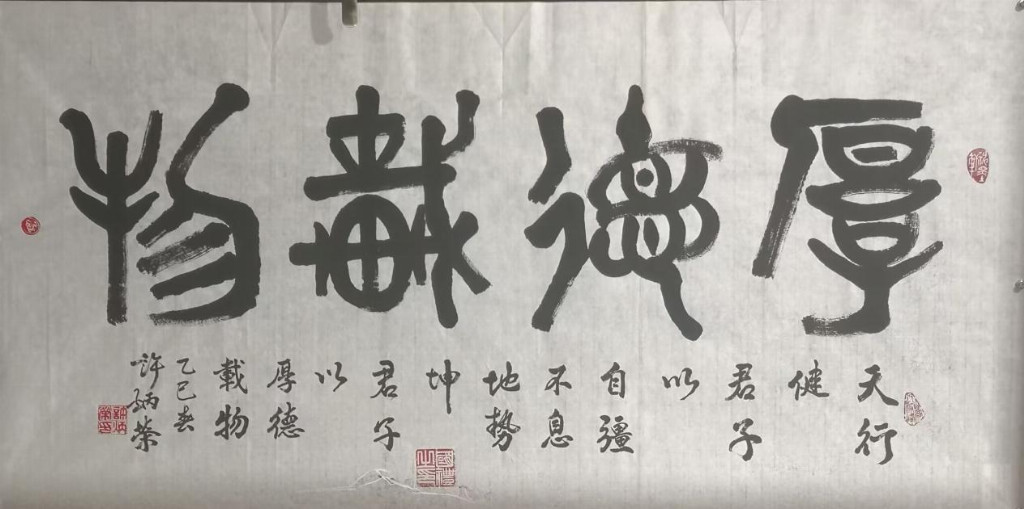 厚德載物
天行
健
君子
以
自彊
不息
地勢
坤
君子
以
厚德
載物
乙巳春
許炳榮